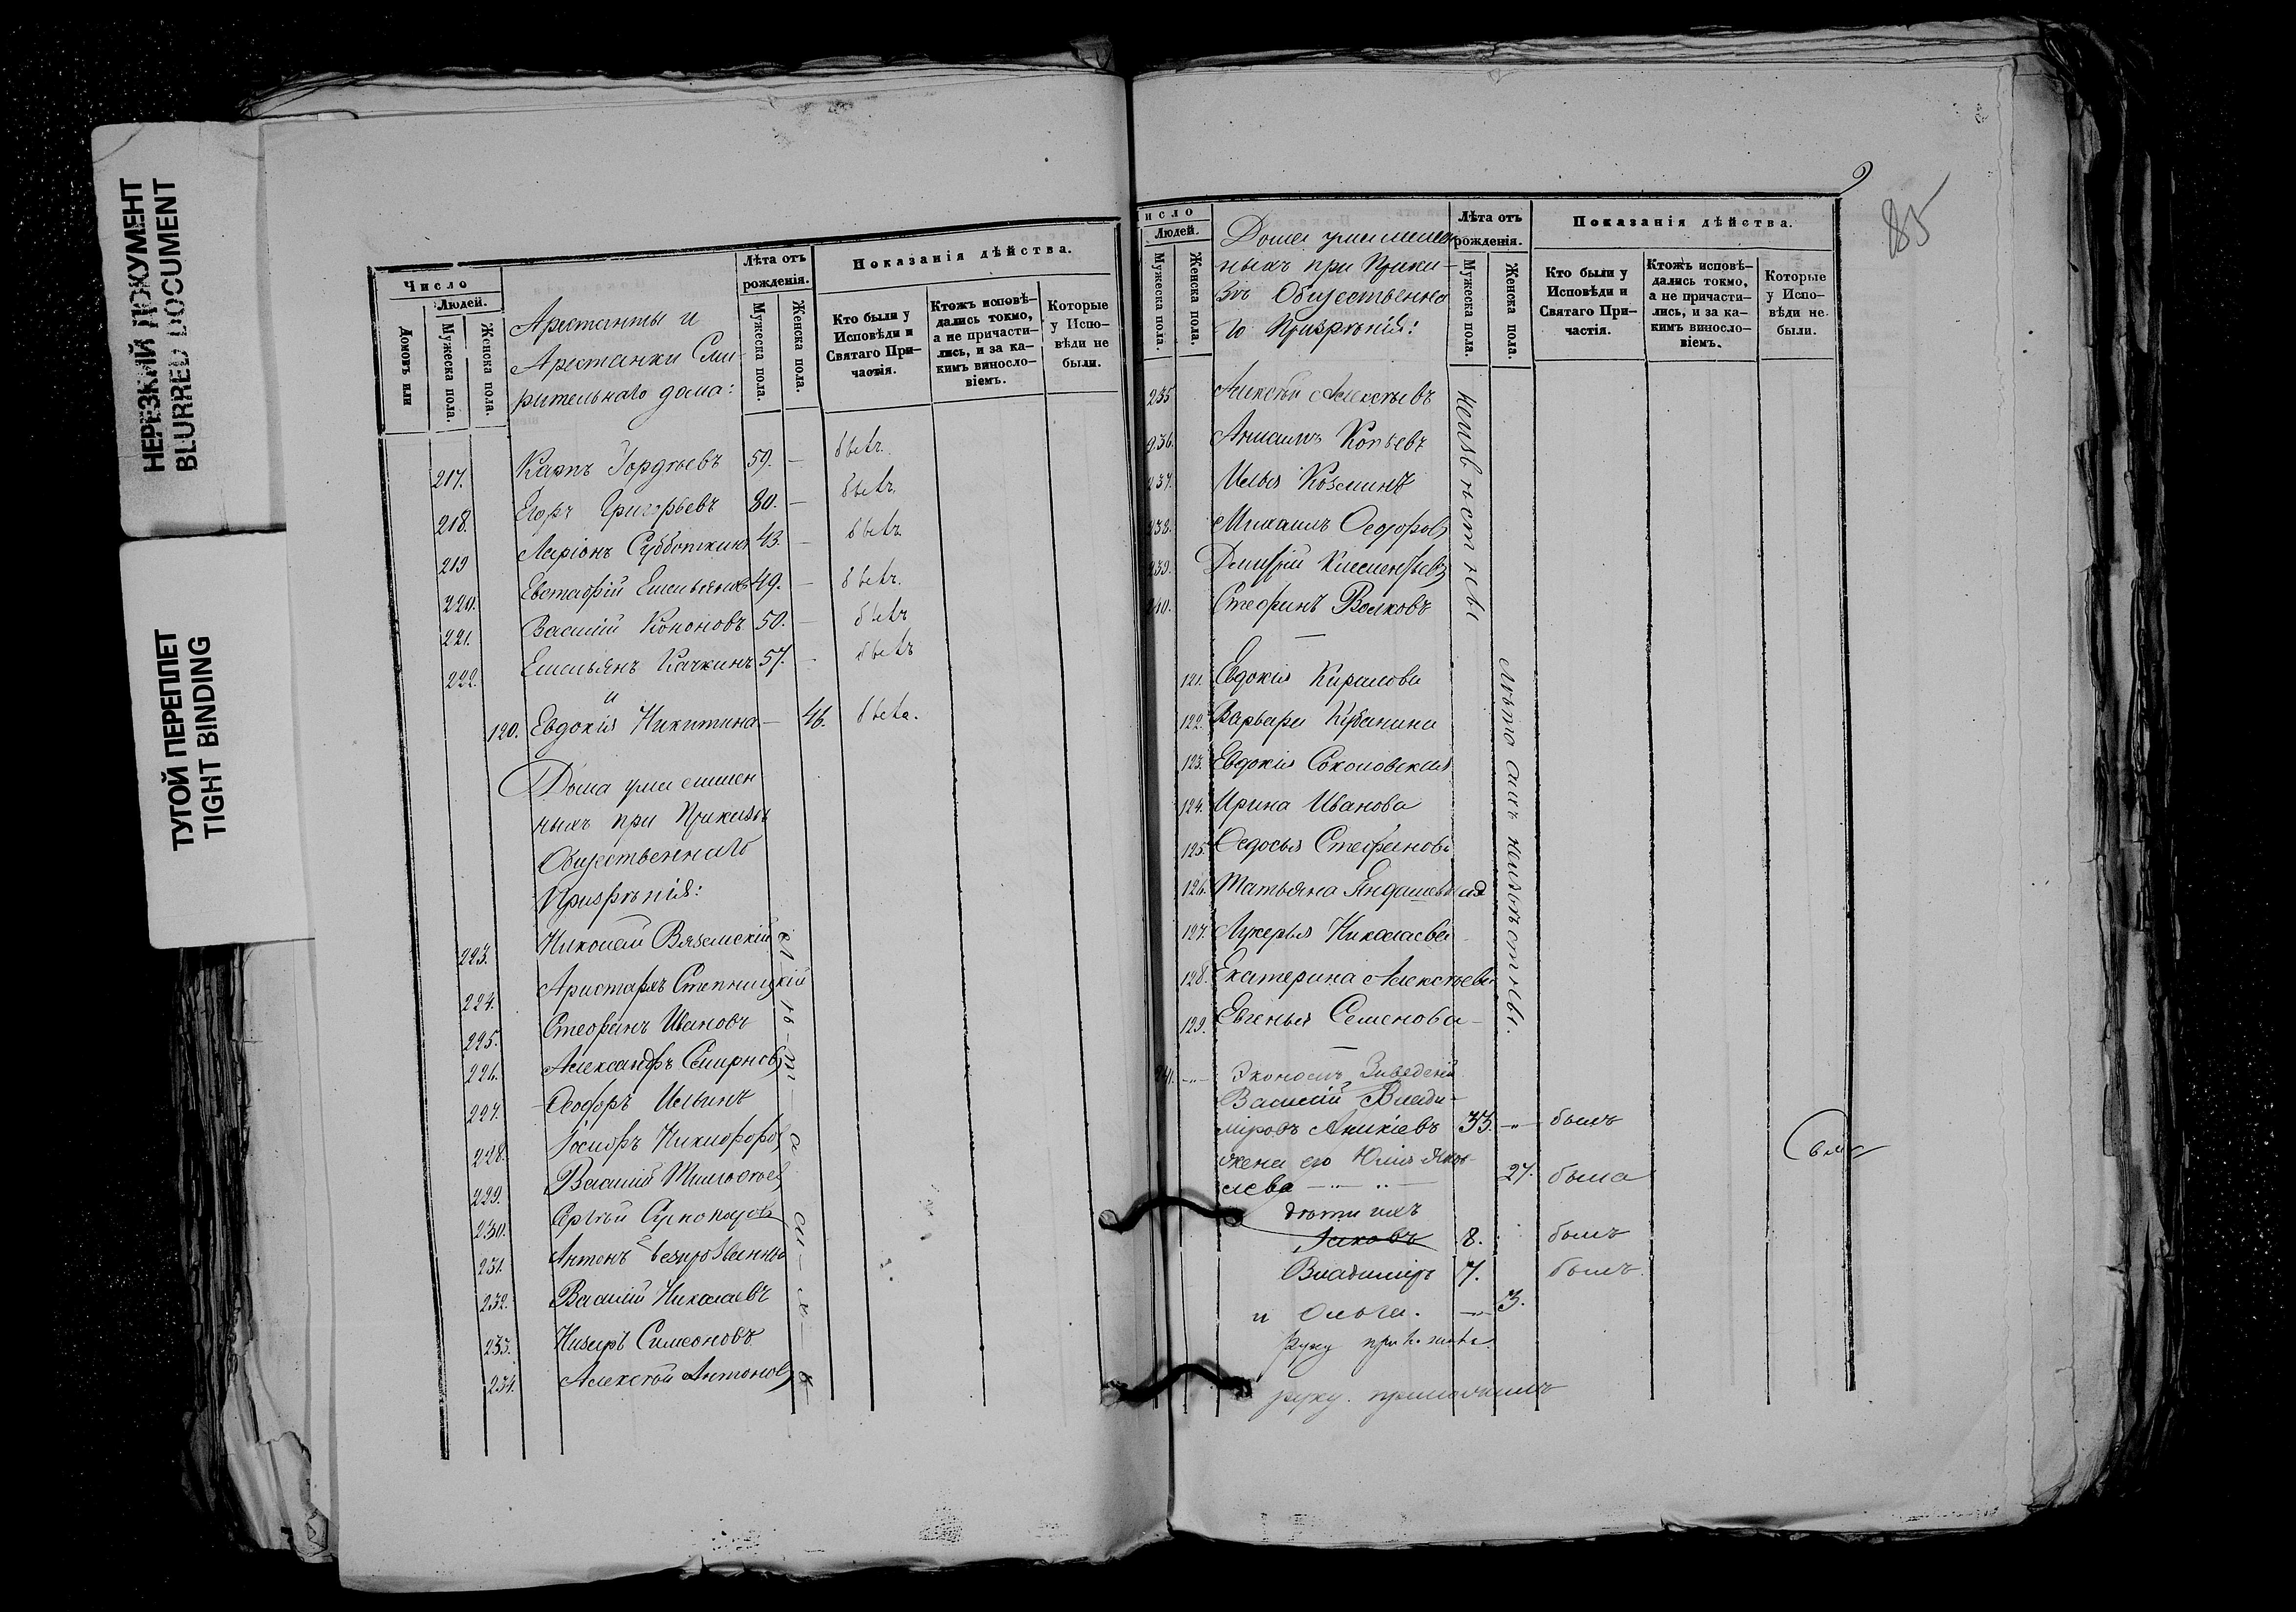 НЕРЕЗКИЙ ДОКУМЕНТ
BLURRED DOCUMENT
ТУГОЙ ПЕРЕПЛЕТ
TIGHT BINDING
Число
Людей.
Домовъ или
Мужеска пола.
Женска пола.
Арестанты и
Арестанки Сми-
рительнаго дома:
Лѣта отъ рожденія.
Мужеска пола.
Женска пола.
Показанія дѣйства.
Кто были у Исповѣди и Святаго Причастія.
Ктожъ исповѣдались токмо, а не причастились, и за какимъ винословіемъ.
Которые у Исповѣди не были.
217. Карпъ Гордѣевъ 59. — былъ.
218. Егоръ Григорьевъ 80. — былъ.
219 Ларіонъ Субботкинъ 43. — былъ
220. Евстафій Емельяновъ 49. — былъ.
221. Василій Кононовъ 50. — былъ
222. Емельянъ Качкинъ 57. — былъ
и
120. Евдокія Никитина — 46. была.
Дома умалишен
ныхъ при Приказѣ
Общественнаго
Призрѣнія:
223. Николай Вяземскій
224. Аристархъ Степницкій
225. Стефанъ Ивановъ
226. Александръ Смирновъ
227. Ѳеодоръ Ильинъ
228. Іосифъ Никифоровъ
229. Василій
230. Сергѣй
231. Антонъ
232. Василій Николаевъ
233. Назаръ Симеоновъ
234. Алексѣй Антоновъ
Л-ѣ-т-а
9
85
Число
Людей.
Мужеска пола.
Женска пола.
Дома умалишен
ныхъ при Прика-
зѣ Общественна
го Призрѣнія:
Лѣта отъ рожденія.
Мужеска пола.
Женска пола.
Показанія дѣйства.
Кто были у Исповѣди и Святаго Причастія.
Ктожъ исповѣдались токмо, а не причастились, и за какимъ винословіемъ.
Которые у Исповѣди не были.
235 Алексѣй Алексѣевъ
236. Копьевъ
237. Илья Козминъ
238. Михаилъ Ѳеодоровъ
239. Дмитрій Климентьевъ
240. Стефанъ Волковъ
неизвѣстны
121. Евдокія Кирилова
122. Варвара Кубанина
123. Евдокія Соколовская
124. Ирина Иванова
125. Ѳедосья Стефанова
126. Татьяна
127. Лукерья Николаева
128. Екатерина Алексѣева
129. Евгенья Семенова
Лѣта ихъ неизвѣстны.
241. Экономъ Заведеній
Василій Влади-
міровъ Аникіевъ 33. — былъ
жена его Юлія Яков-
лева 27. была
дѣти ихъ
Іаковъ 8. былъ
Владиміръ 7. былъ.
и Ольга. — 3.
руку приложила.
руку приложилъ